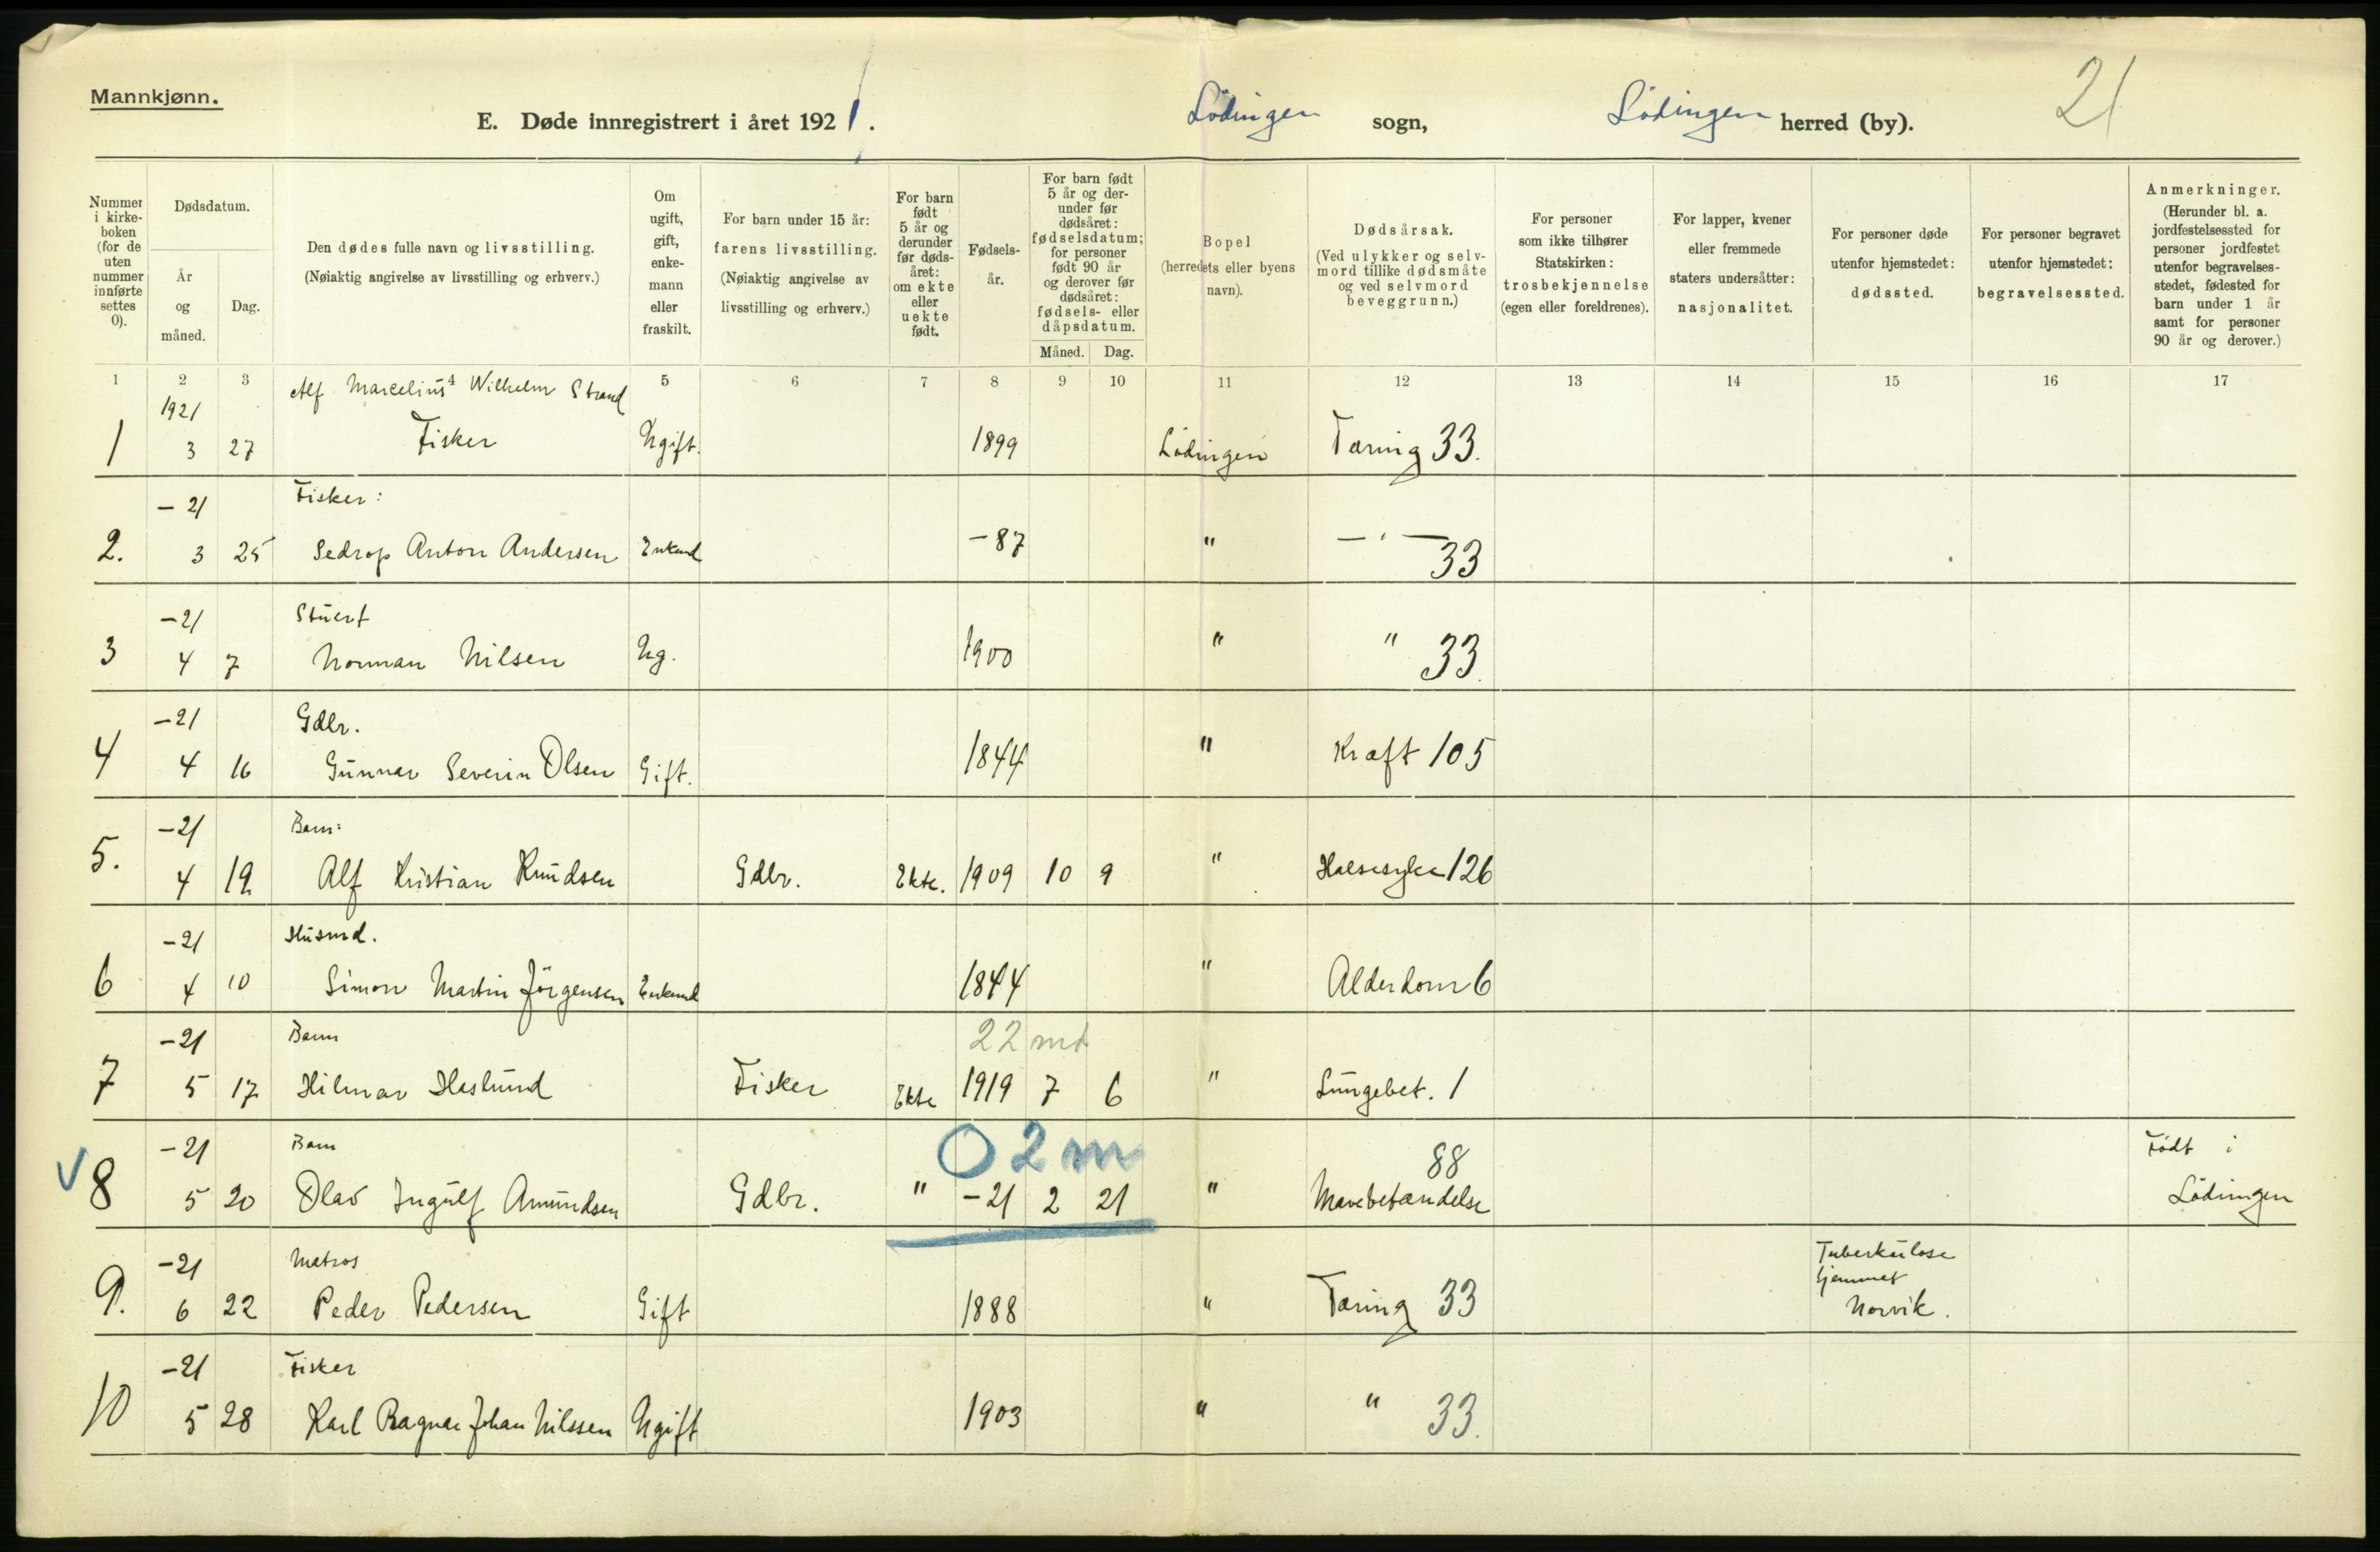 Mannkjønn.
E. Døde innregistrert i året 1921.
Lödingen sogn,
Lödingen herred (by).
21
Nummer i kirkeboken (for de uten nummer innførte settes 0).
Dødsdatum.
År og måned.
Dag.
Den dødes fulle navn og livsstilling.
(Nøiaktig angivelse av livsstilling og erhverv.)
Om ugift, gift, enkemann eller fraskilt.
For barn under 15 år: farens livsstilling.
(Nøiaktig angivelse av livsstilling og erhverv.)
For barn født 5 år og derunder før dødsåret: om ekte eller uekte født.
Fødselsår.
For barn født 5 år og derunder før dødsåret: fødselsdatum; for personer født 90 år og derover før dødsåret: fødsels- eller dåpsdatum.
Måned. Dag.
Bopel (herredets eller byens navn).
Dødsårsak.
(Ved ulykker og selvmord tillike dødsmåte og ved selvmord beveggrunn.)
For personer som ikke tilhører Statskirken: trosbekjennelse (egen eller foreldrenes).
For lapper, kvener eller fremmede staters undersåtter: nasjonalitet.
For personer døde utenfor hjemstedet: dødssted.
For personer begravet utenfor hjemstedet: begravelsessted.
Anmerkninger.
(Herunder bl. a. jordfestelsessted for personer jordfestet utenfor begravelsesstedet, fødested for barn under 1 år samt for personer 90 år og derover.)
1 2 3 4 5 6 7 8 9 10 11 12 13 14 15 16 17
1921 Alf Marcelius Wilhelm Strand
1 3 27 Fisker Ugift. 1899 Lödingen Tæring 33.
- 21 Fisker:
2. 3 25 Sedrop Anton Andersen Enkemd -87 " — " — 33
-21 Stuert
3 4 7 Norman Nilsen Ug. 1900 " " 33.
-21 Gdbr.
4 4 16 Gunnar Severin Olsen Gift. 1844 " Kræft 105
-21 Barn:
5. 4 19 Alf Kristian Knudsen Gdbr. Ekte. 1909 10 9 " Halsesyke 126
-21 Husmd.
6 4 10 Simon Martin Jörgensen Enkemd 1844 " Alderdom 6
-21 Barn 22 md
7 5 17 Hilmar Haslund Fisker Ekte 1919 7 6 " Lungebet. 1
-21 Barn 0 2 m 88 Födt i
V 8 5 20 Olav Ingulf Amundsen Gdbr. " -21 2 21 " Mavebetændelse Lödingen
-21 Matros Tuberkulose
hjemmet
9. 6 22 Peder Pedersen Gift 1888 " Tæring 33 Narvik.
-21 Fisker
10 5 28 Karl Ragnar Johan Nilssen Ugift 1903 " " 33.